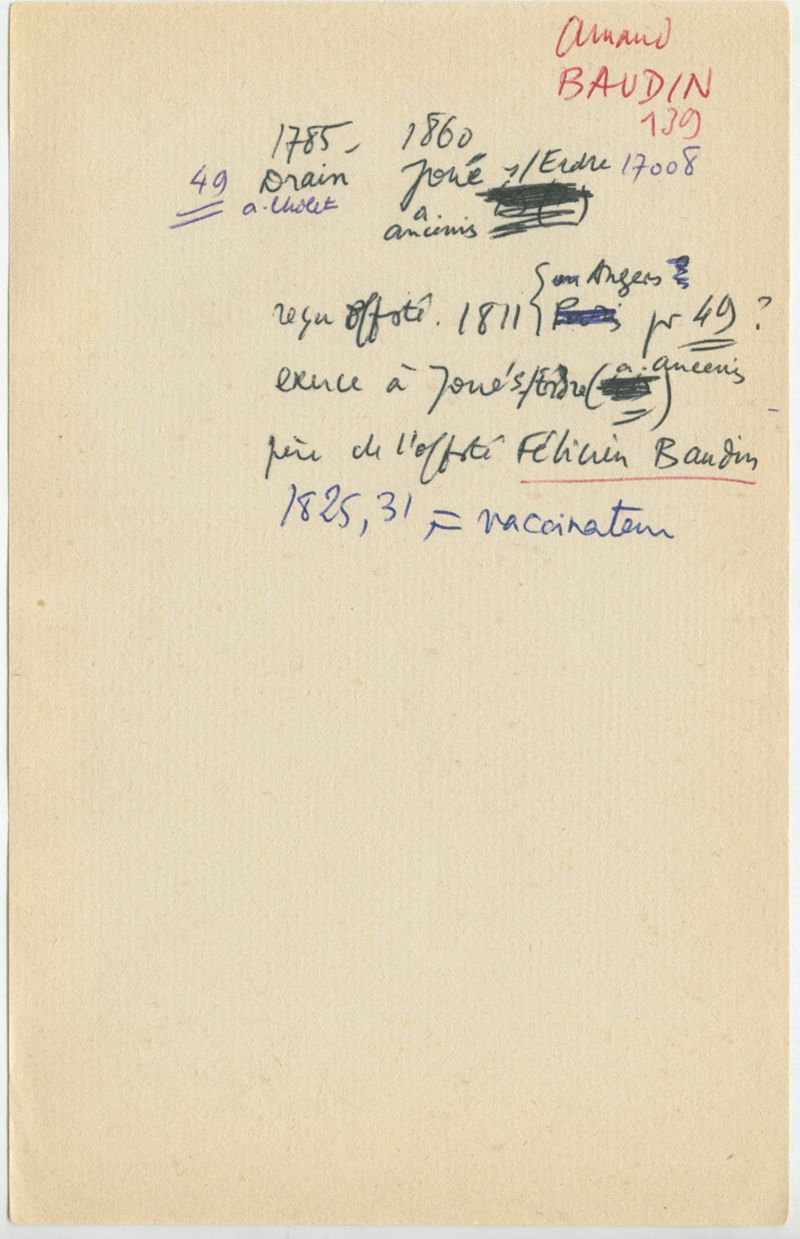 Amand
BAUDIN
139
1785 - 1860
49 Drain Joué s/Erdre 17008
a. Cholet a. ancenis
ou Angers
reçu offsté. 1811 { Paris pr 49 ?
exerce à Joué s/Erdre ( a. ancenis )
père de l'offsté Félicien Baudin
1825, 31, = vaccinateur